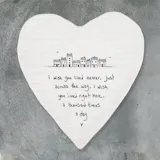 I wish you lived nearer, just
across the way, I wish
you lived right here...
a hundred times
a day